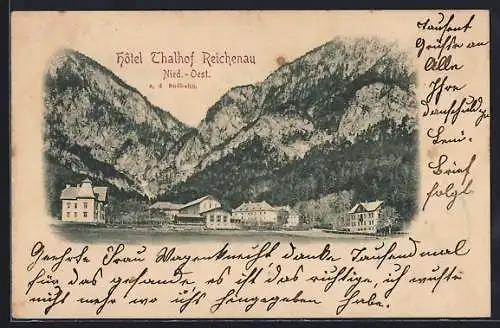 Hôtel Thalhof Reichenau
Nied.-Oest.
a. d. Südbahn.
Tausent
Grüsse an
alle
Ihre
danschuldige
Leni.
Brief
folgt
Geehrte Frau Wagenknecht danke Tausendmal
für das gesande, es ist das richtige, ich wußte
nicht mehr wo ichs hingegeben habe.